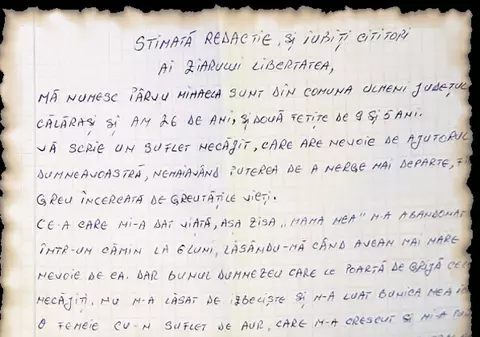 STIMATĂ REDACTIE, ȘI IUBIȚI CITITORI
AI ZIARULUI LIBERTATEA,
MĂ NUMESC ÎÂRVU MIHAELA SUNT DIN COMUNA ULMENI JUDEȚUL
CĂLĂRAȘI ȘI AM 26 DE ANI, ȘI DOUĂ FETIȚE DE 9 ȘI 5 ANI.
VĂ SCRIE UN SUFLET NECĂJIT, CARE ARE NEVOIE DE AJUTORUL
DUMNEAVOASTRĂ, NEMAIAVÂND PUTEREA DE A MERGE MAI DEPARTE,
GREU ÎNCERCATĂ DE GREUTĂȚILE VIEȚI.
CE-A CARE MI-A DAT VIAȚĂ, AȘA ZISA „MAMA MEA" M-A ABANDONAT
ÎNTR-UN CĂMIN LA 6 LUNI, LĂSÂNDU-MĂ CÂND AVEAM MAI MARE
NEVOIE DE EA. DAR BUNUL DUMNEZEU CARE LE POARTĂ DE GRIJĂ
NECĂJIȚI, NU M-A LĂSAT DE IZBELIȘTE ȘI M-A LUAT BUNICA MEA
O FEMEIE CU-N SUFLET DE AUR, CARE M-A CRESCUT ȘI MI-A